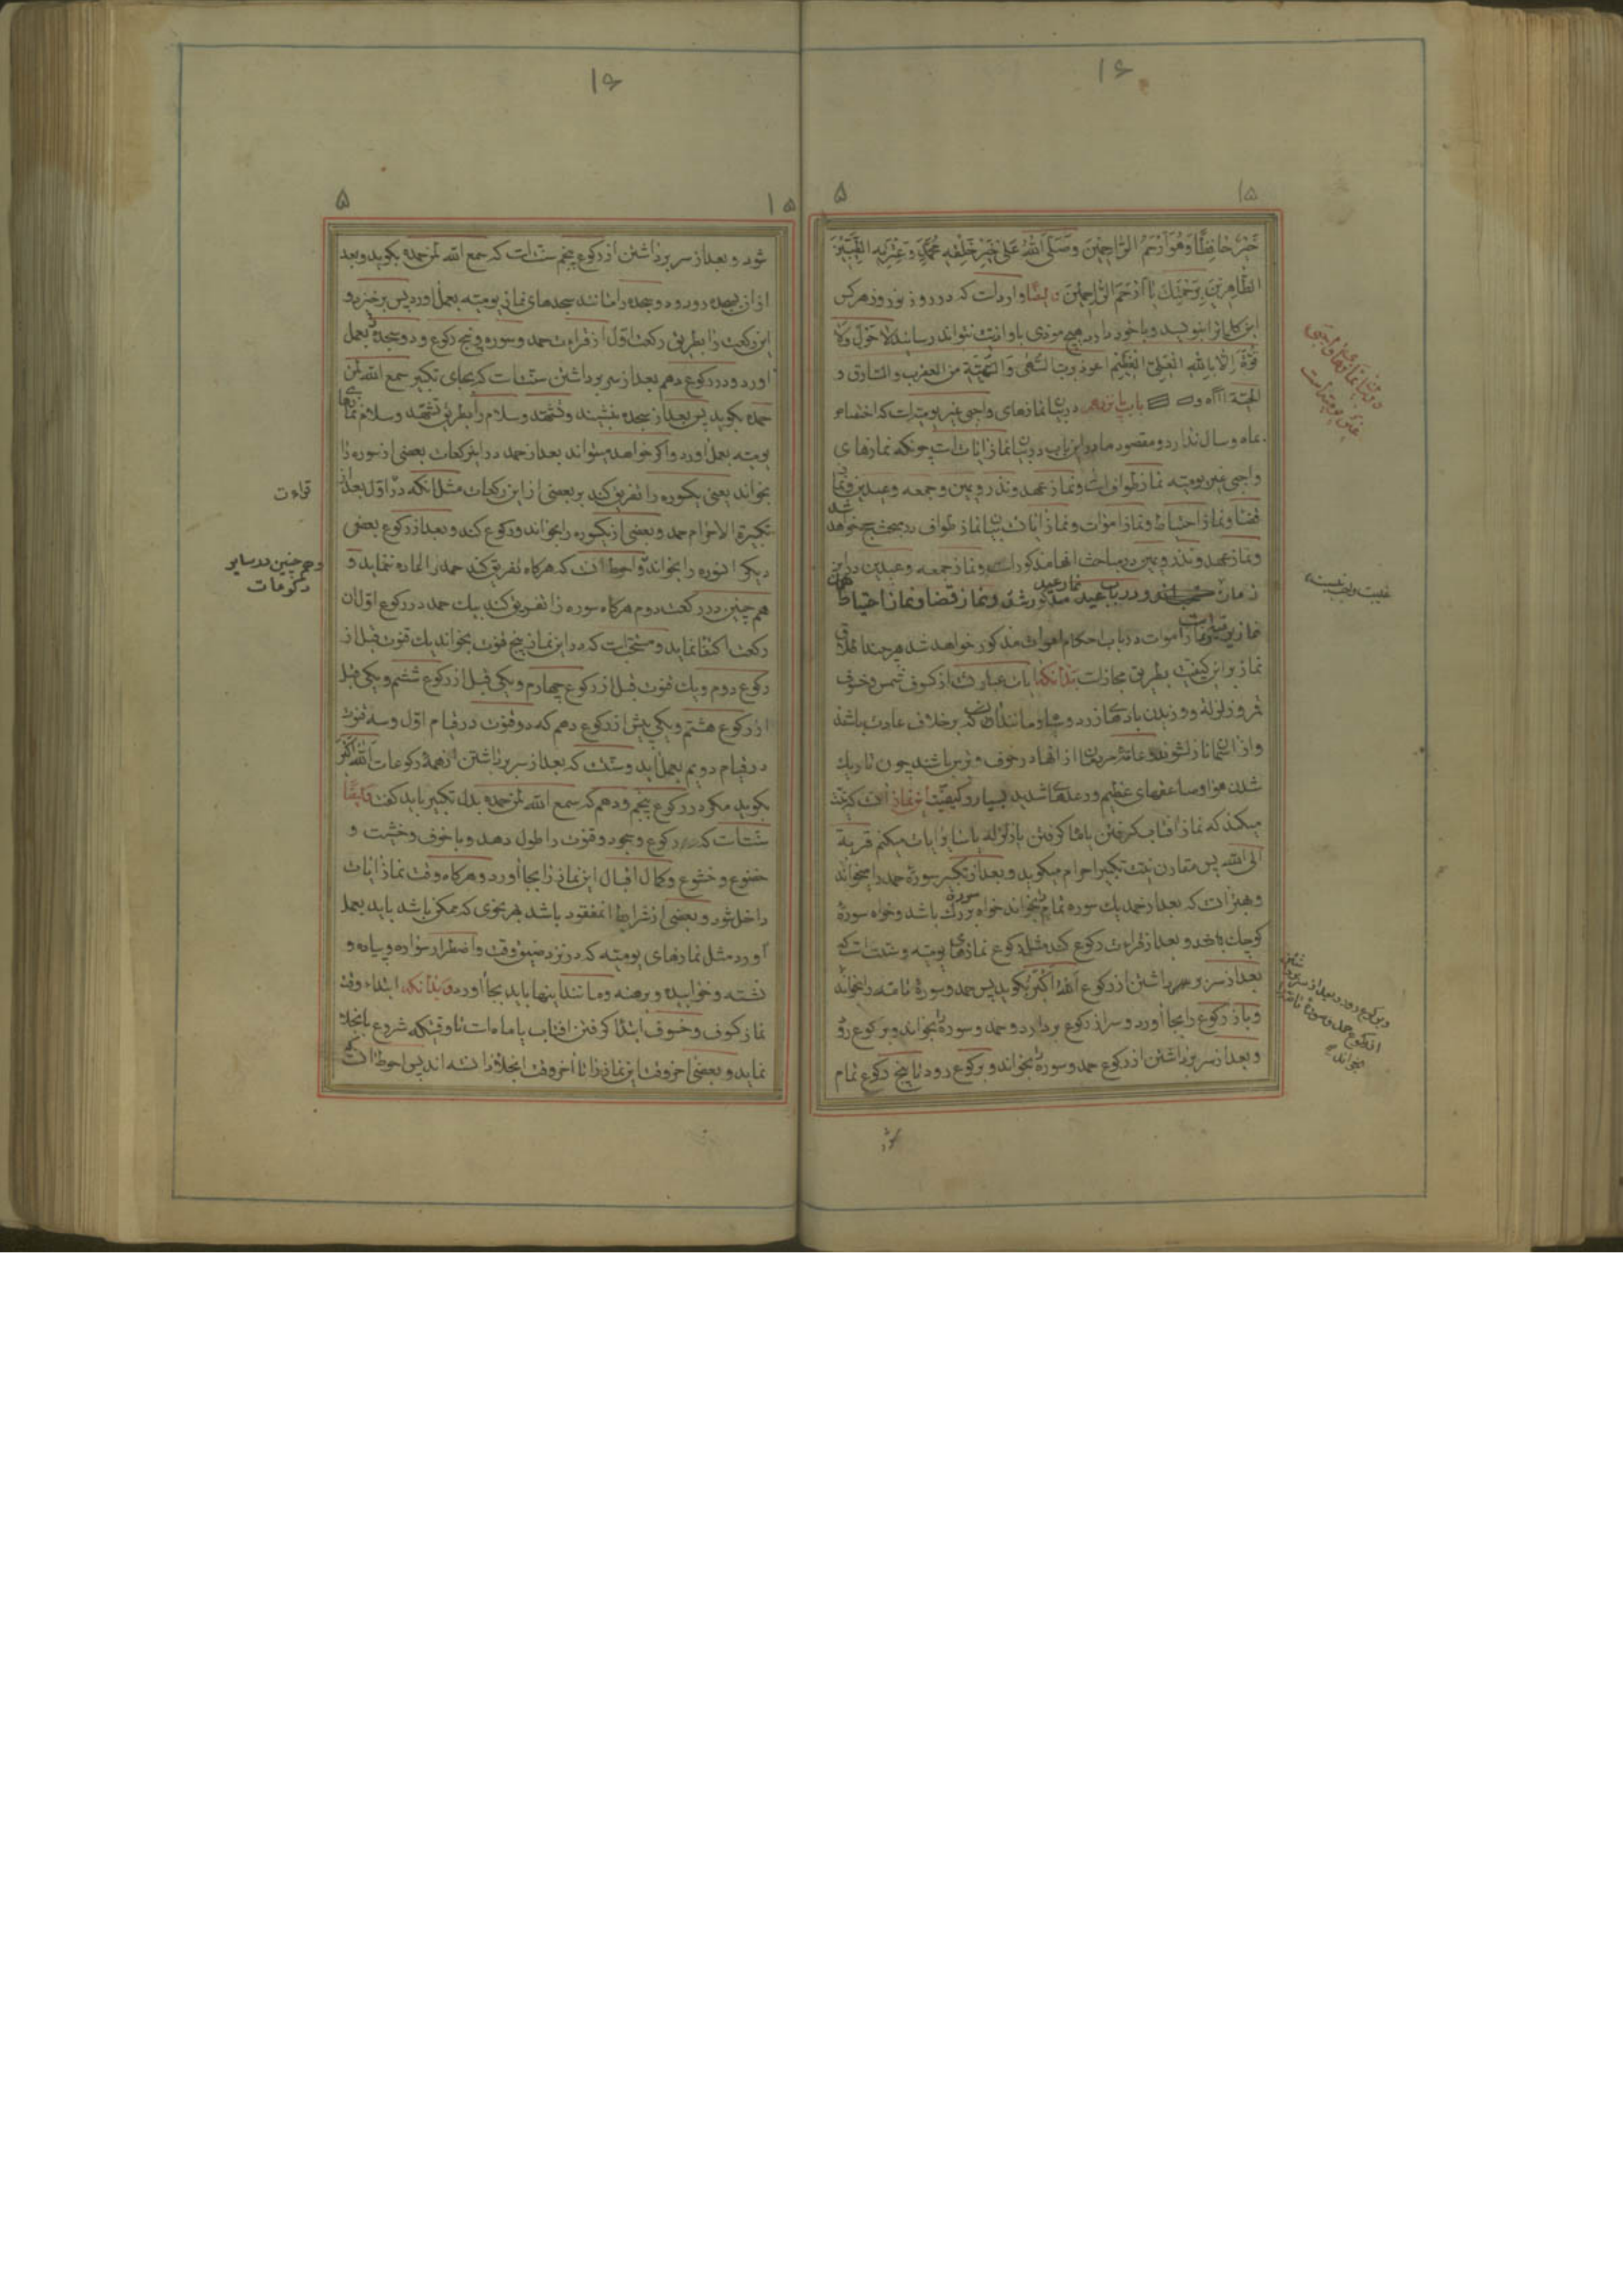 ۱۶
۱۵
۵
خَیْرٌ حَافِظًا وَهُوَ اَرْحَمُ الرّاحِمینَ وَصَلَّی اللهُ عَلی خَیْرِ خَلْقِهِ مُحَمَّدٍ وَعِتْرَتِهِ الطَّیِّبینَ
الطّاهِرینَ بِرَحْمَتِكَ یا اَرْحَمَ الرّاحِمینَ وایضًا وارداست که در روز نوروز هرکس
این کلمات را بنویسد و با خود دارد هیچ موذی باو اذیت نتواند رسانید لا حَوْلَ وَلا
قُوَّةَ اِلّا بِاللهِ العَلِیِّ العَظیم اعوذ برب من العقرب والسارق و
الحیّة باب پانزدهم در بیان نمازهای واجبی غیر یومیه است که اختصاص
بماه و سال ندارد و مقصود ما در این باب در بیان نماز ایات است چونکه نمازهای
واجبی غیر یومیه نماز طواف است و نماز عهد و نذر و یمین و جمعه و عیدین و نماز
قضا و نماز احتیاط و نماز اموات و نماز ایات بیان نماز طواف در مبحث حج خواهد شد
و نماز عهد و نذر و یمین در مباحث انها مذکور است و نماز جمعه و عیدین در این
زمان و در باب عید نماز عید مذکور شد و نماز قضا و نماز احتیاط همان
نماز یومیه است و نماز اموات در باب احکام اموات مذکور خواهد شد هر چند اطلاق
نماز بر این کیفیت بطریق مجاز است بدانکه ایات عبارت است از کسوف شمس و خسوف
قمر و زلزله و وزیدن بادهای زرد و سیاه و مانند ان که بر خلاف عادت باشد
و از اسمان نازل شود و عامّه مردمان از انها در خوف و ترس باشند چون تاریك
شدن هوا و صاعقهای عظیم و رعدهای شدید بسیار و کیفیت این نماز انست که نیت
میکند که نماز افتاب گرفتن یا ماه گرفتن یا زلزله یا سایر ایات میکنم قربة
الی الله پس مقارن نیت تکبیر احرام میگوید و بعد از تکبیر سوره حمد را میخواند
و بهتر انست که بعد از حمد یك سوره تمام بخواند خواه سوره بزرك باشد و خواه سورهٔ
کوچك باشد و بعد از قراءت رکوع کند مثل رکوع نمازهای یومیه و سنت است که
بعد از سر برداشتن از رکوع اللهُ اَکْبَرُ بگوید پس حمد و سورهٔ تامه را بخواند
و باز رکوع را بجا آورد و سر از رکوع بردارد و حمد و سوره بخواند و برکوع رود
و بعد از سر برداشتن از رکوع حمد و سوره بخواند و برکوع رود تا پنج رکوع تمام
در بیان نمازهای واجبی
غیر یومیه است
و برکوع رود و بعد از سر برداشتن
از رکوع حمد و سورهٔ تامه
بخواند
۱۶
۱۵
۵
شود و بعد از سر برداشتن از رکوع پنجم سنت است که سمع الله لمن حمده بگوید و بعد
از ان بسجده رود و دو سجده را مانند سجدهای نماز یومیه بعمل اورد پس برخیزد و
این رکعت را بطریق رکعت اول از قراءت حمد و سوره و پنج رکوع و دو سجده بعمل
اورد و در رکوع دهم بعد از سر برداشتن سنت است که بجای تکبیر سمع الله لمن
حمده بگوید پس بعد از سجده بنشیند و تشهد و سلام را بطریق تشهد و سلام نمازهای
یومیه بعمل اورد و اگر خواهد میتواند بعد از حمد در این رکعات بعضی از سوره را
بخواند یعنی یکسوره را تفریق کند بر بعضی از این رکعات مثل انکه در اول بعد از
تکبیرة الاحرام حمد و بعضی از یکسوره را بخواند و رکوع کند و بعد از رکوع بعضی
دیگر انسوره را بخواند و احوط انست که هرگاه تفریق کند حمد را اعاده ننماید و
هم چنین در رکعت دوم هرگاه سوره را تفریق کند بیك حمد در رکوع اول ان
رکعت اکتفا نماید و مستحب است که در این نماز پنج قنوت بخواند یك قنوت قبل از
رکوع دوم و یك قنوت قبل از رکوع چهارم و یکی قبل از رکوع ششم و یکی قبل
از رکوع هشتم و یکی پیش از رکوع دهم که دو قنوت در قیام اول و سه قنوت
در قیام دویم بعمل اید و سنت است که بعد از سر برداشتن از همهٔ رکوعات اَللهُ اَکْبَر
بگوید مگر در رکوع پنجم و دهم که سمع الله لمن حمده بدل تکبیر باید گفت و ایضًا
سنت است که رکوع و سجود و قنوت را طول دهد و با خوف و خشیت و
خضوع و خشوع و کمال اقبال این نماز را بجا آورد و هرگاه وقت نماز ایات
داخل شود و بعضی از شرایط ان مفقود باشد بهر نحوی که ممکن باشد باید بعمل
آورد مثل نمازهای یومیه که در نزد ضیق وقت و اضطرار سواره و پیاده و
نشسته و خوابیده و برهنه و مانند اینها باید بجا آورد و بدانکه ابتداء وقت
نماز کسوف و خسوف ابتدا گرفتن افتاب یا ماه است تا وقتیکه شروع بانجلا
نماید و بعضی اخر وقت این نماز را تا اخر وقت انجلا دانسته اند پس احوط انست که
قراءت
و هم چنین در سایر
رکوعات